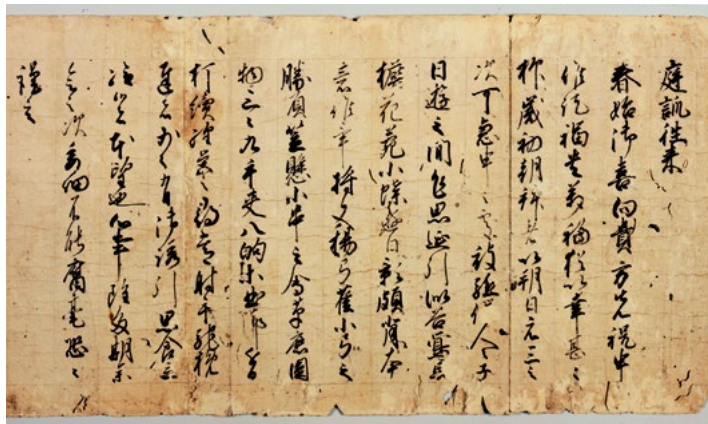 庭訓往来
春始御喜向貴方先祝申
候訖福貴万福猶以幸甚々
抑歳初朝拝者以朔日元三之
次可急申之処被駈催人々子
日遊之間乍思延引似谷鶯忘
檐花苑小蝶遊日影頗背本
意候畢将又楊弓雀小弓之
勝負笠懸小串之会草鹿円
物之遊三々九手夾八的等曲節近日
打続経営之尋常射手馳挽
達者少々有御誘引思食立
給者本望也心事雖多期参
会之次委細不能腐毫恐々
謹言